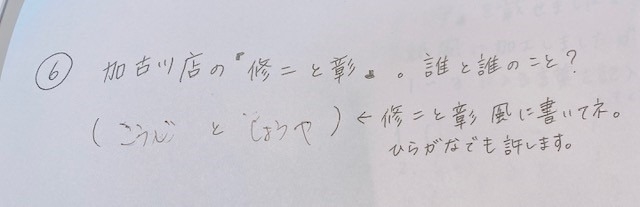 ⑥ 加古川店の『修二と彰』。誰と誰のこと?
(こうじ と じょうや) ← 修二と彰 風に書いてネ。
ひらがなでも許します。